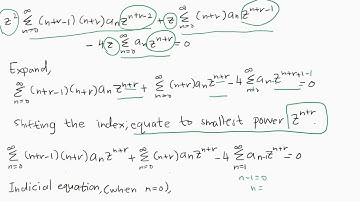 z² ∑_{n=0}^{∞} (n+r-1)(n+r)a_n z^{n+r-2} + z ∑_{n=0}^{∞} (n+r)a_n z^{n+r-1}
-4z ∑_{n=0}^{∞} a_n z^{n+r} = 0
Expand,
∑_{n=0}^{∞} (n+r-1)(n+r)a_n z^{n+r} + ∑_{n=0}^{∞} (n+r)a_n z^{n+r} - 4 ∑_{n=0}^{∞} a_n z^{n+r+1-1} = 0
Shifting the index, equate to smallest power z^{n+r}.
∑_{n=0}^{∞} (n+r-1)(n+r)a_n z^{n+r} + ∑_{n=0}^{∞} (n+r)a_n z^{n+r} - 4 ∑_{n=1}^{∞} a_{n-1} z^{n+r} = 0
n-1=0
Indicial equation, (when n=0),
n=